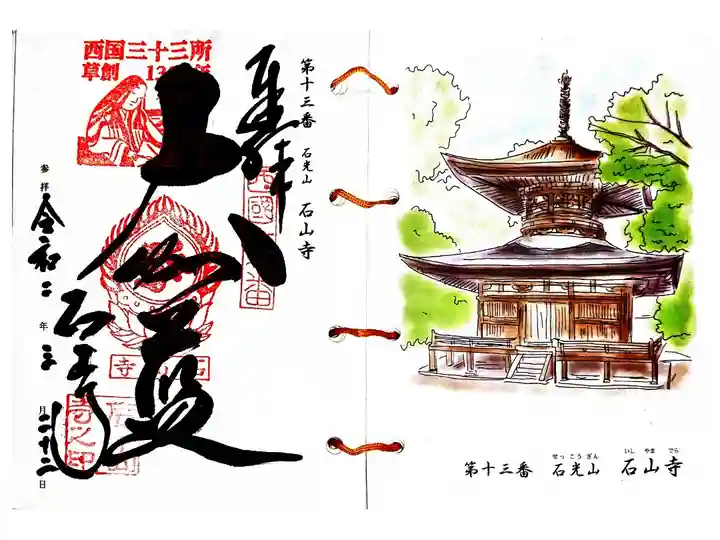 西国三十三所
草創 13
奉拝
第十三番 石光山 石山寺
大伽藍
石山寺
参拝 令和二年三月二十二日
第十三番 石光山 石山寺
せっ こう ざん いし やま でら